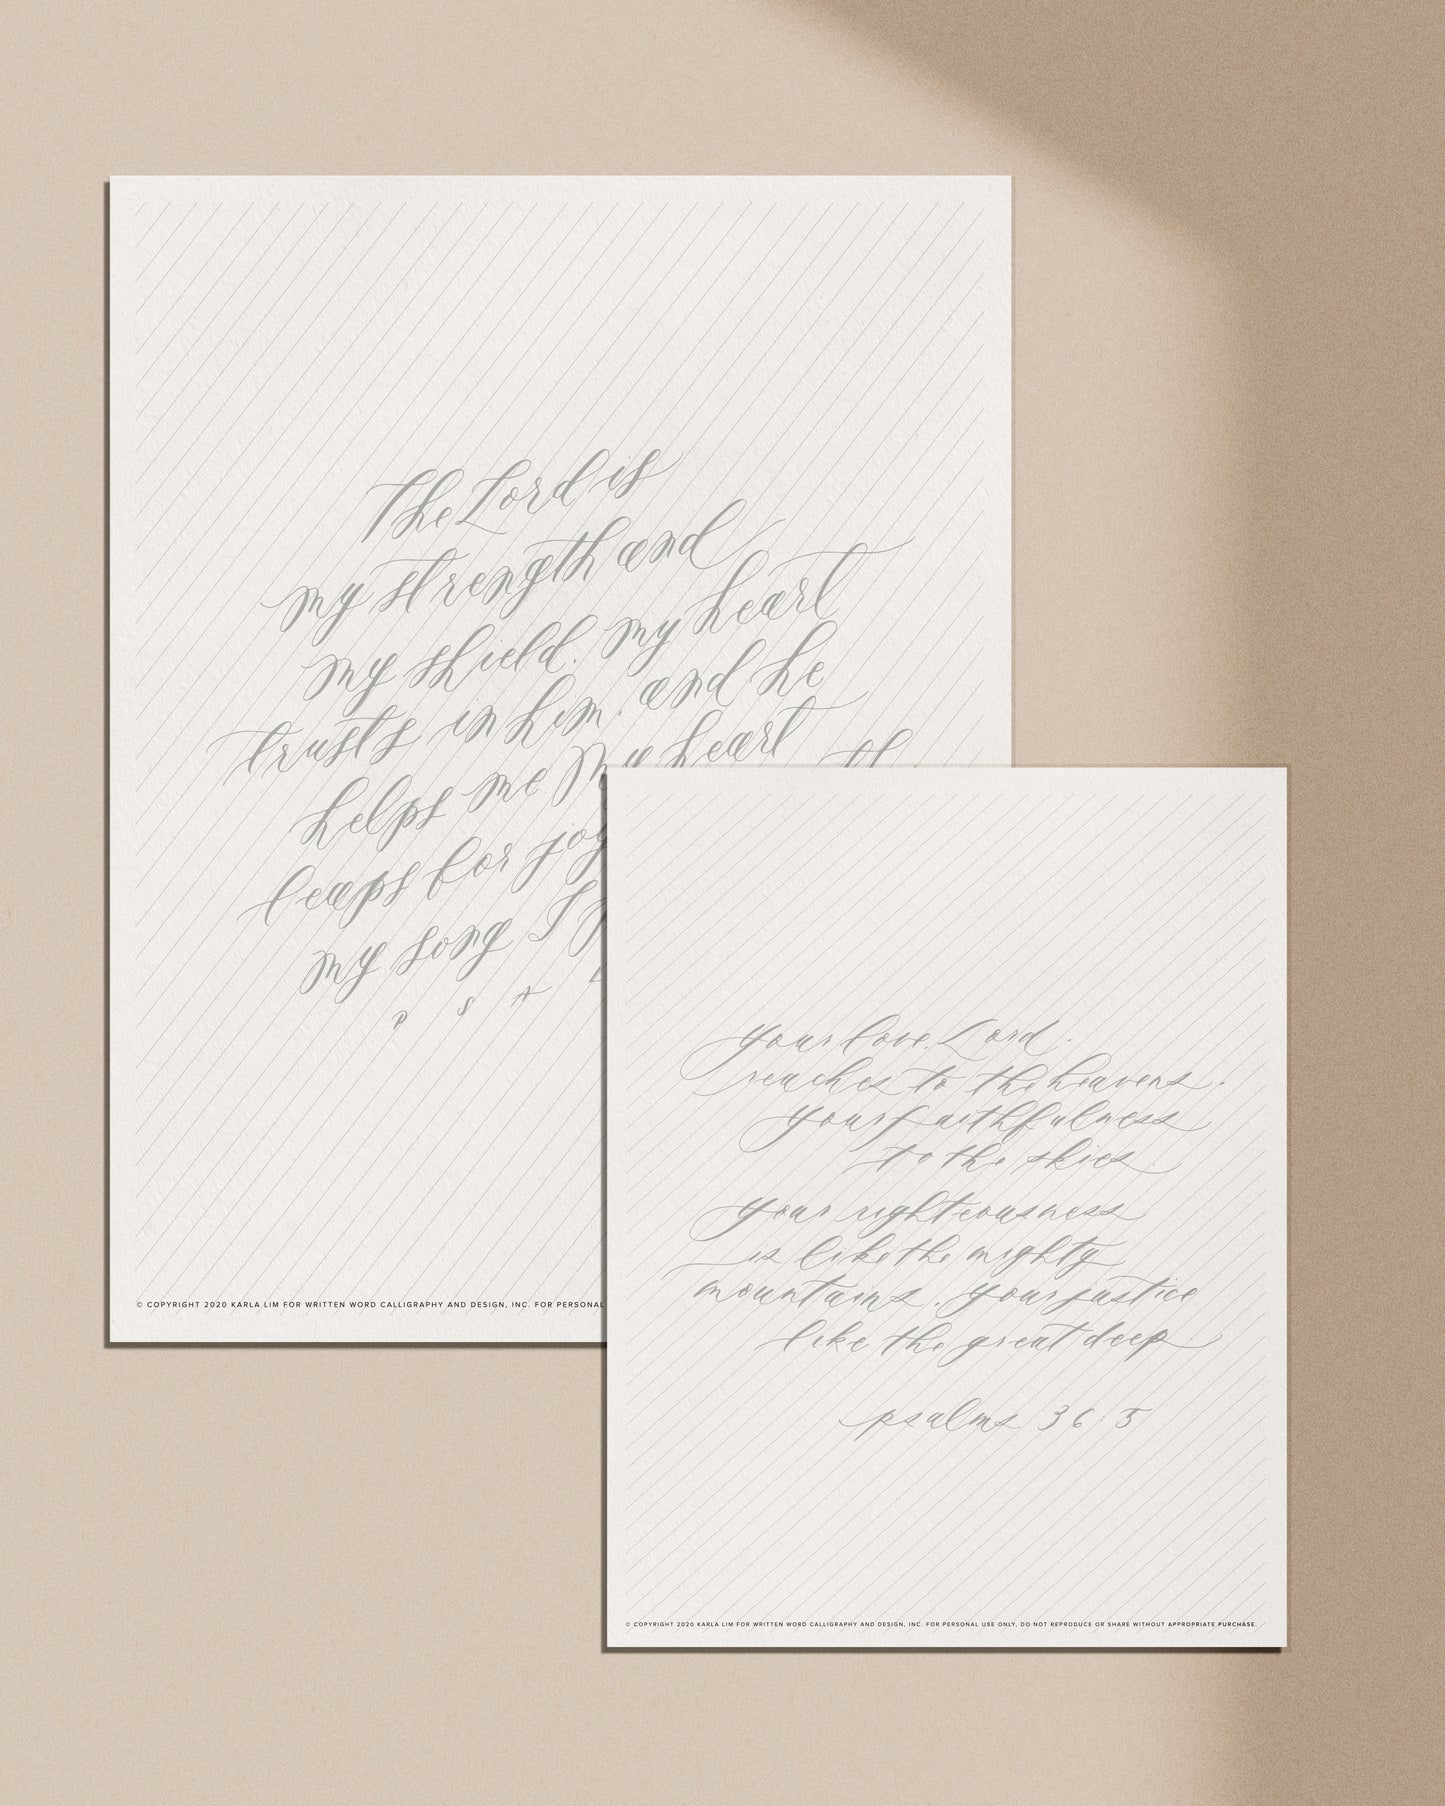 The Lord is
my strength and
my shield. my heart
trusts in him. and he
helps me My heart
leaps for joy
my song I
P S A
© COPYRIGHT 2020 KARLA LIM FOR WRITTEN WORD CALLIGRAPHY AND DESIGN, INC. FOR PERSONAL
your love, Lord.
reaches to the heavens.
your faithfulness
to the skies.
your righteousness
is like the mighty
mountains. your justice
like the great deep.
psalms 36:5
© COPYRIGHT 2020 KARLA LIM FOR WRITTEN WORD CALLIGRAPHY AND DESIGN, INC. FOR PERSONAL USE ONLY, DO NOT REPRODUCE OR SHARE WITHOUT APPROPRIATE PURCHASE.